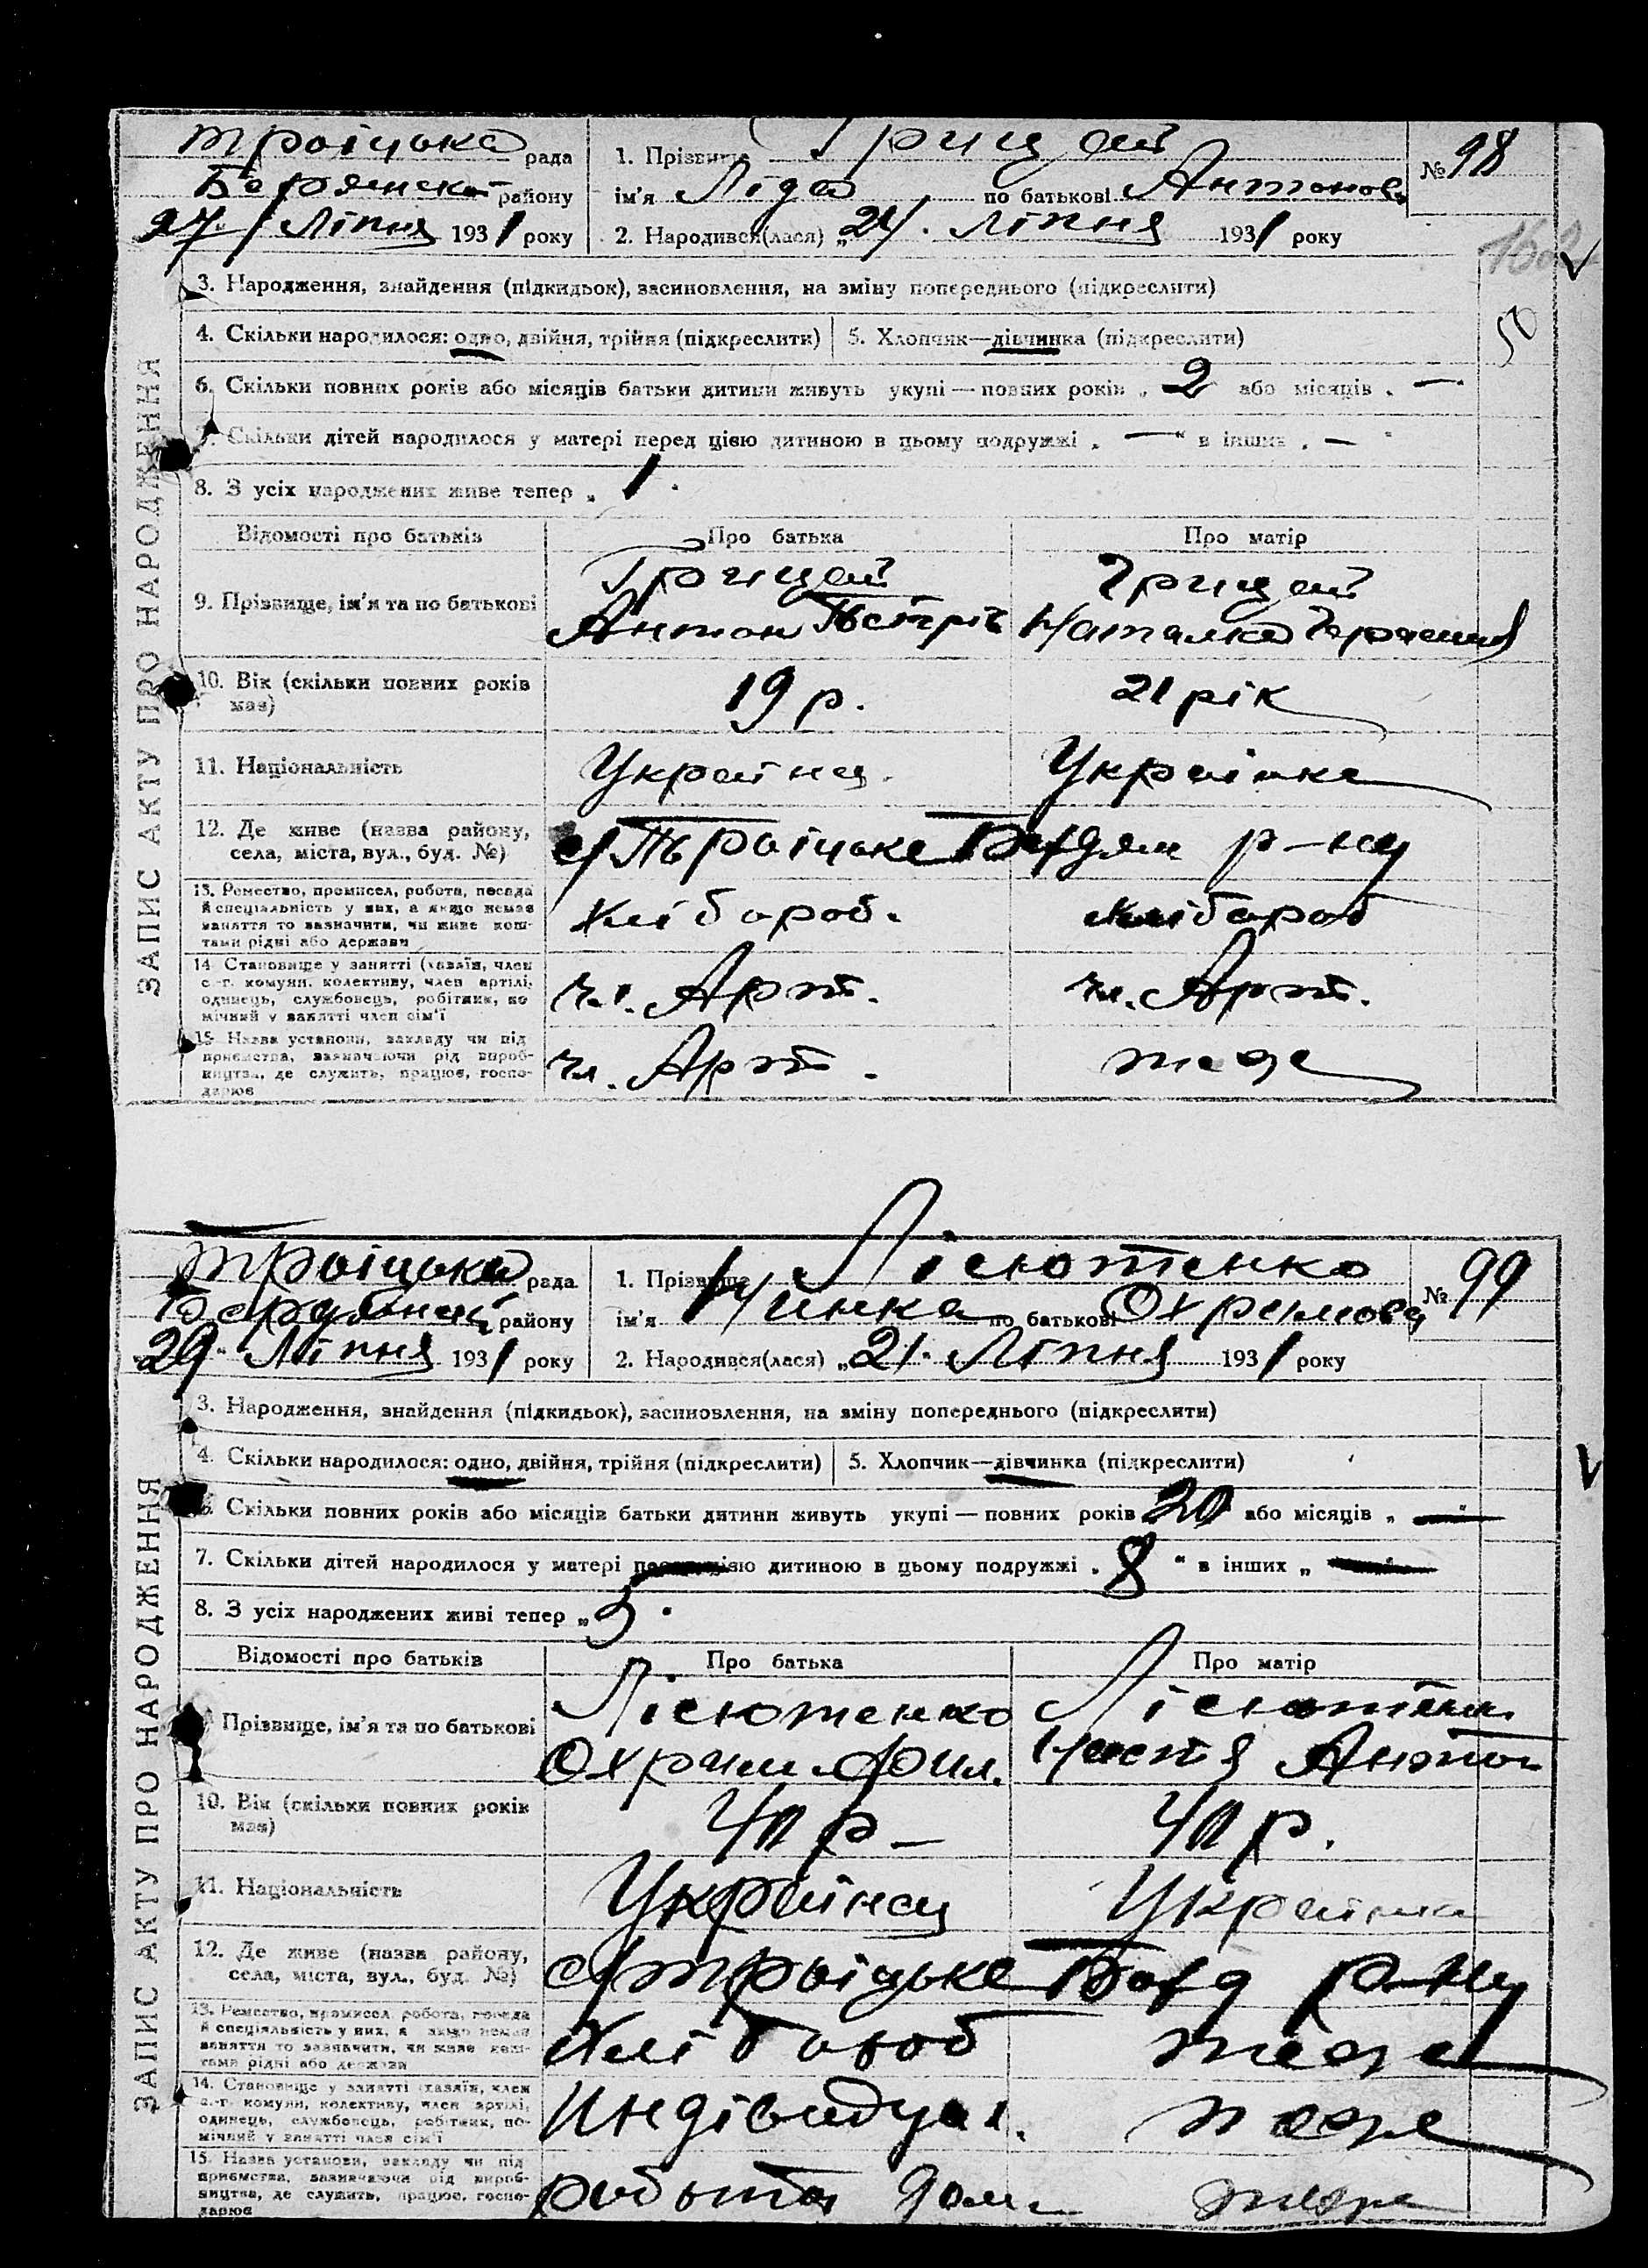 Троіцька рада
району
27/ Ліпня 1931 року
1. Прізвище Грицай
ім'я Ліда по батькові Антонов
2. Народився(лася) „24. Ліпня 1931 року
№ 98
3. Народження, знайдення (підкидьок), засиновлення, на зміну попереднього (підкреслити)
50
4. Скільки народилося: одно, двійня, трійня (підкреслити)
5. Хлопчик—дівчинка (підкреслити)
6. Скільки повних років або місяців батьки дитини живуть укупі — повних років „ 2 або місяців „ —
7. Скільки дітей народилося у матері перед цією дитиною в цьому подружжі „ — “ в інших „ — “
8. З усіх народжених живе тепер „ 1 “
Відомості про батьків
Про батька
Про матір
9. Прізвище, ім'я та по батькові
Грицай
Антон
Грицай
Наталка
10. Вік (скільки повних років
має)
19 р.
21 рік
11. Національність
Украінец.
Украінка
12. Де живе (назва району,
села, міста, вул., буд. №)
с/Троіцьке р-ну
13. Ремество, промисел, робота, посада
й спеціяльність у них, а якщо немає
заняття то зазначити, чи живе кош-
тами рідні або держави
Хлібороб.
Хлібороб
14. Становище у занятті (хазяїн, член
с.-г. комуни, колективу, член артілі,
одинець, службовець, робітник, по-
мічний у занятті член сім'ї
чл. Арт.
чл. Арт.
15. Назва установи, закладу чи під
приємства, зазначаючи рід вироб-
ництва, де служить, працює, госпо-
дарює
чл. Арт.
теже
ЗАПИС АКТУ ПРО НАРОДЖЕННЯ
Троіцька рада
району
29. Ліпня 1931 року
1. Прізвище Лісютенко
ім'я Нинка по батькові Охремова
2. Народився(лася) „21. Ліпня 1931 року
№ 99
3. Народження, знайдення (підкидьок), засиновлення, на зміну попереднього (підкреслити)
4. Скільки народилося: одно, двійня, трійня (підкреслити)
5. Хлопчик—дівчинка (підкреслити)
6. Скільки повних років або місяців батьки дитини живуть укупі — повних років 20 або місяців „ —
7. Скільки дітей народилося у матері перед цією дитиною в цьому подружжі „ 8 “ в інших „ —
8. З усіх народжених живі тепер „ 5 “
Відомості про батьків
Про батька
Про матір
Прізвище, ім'я та по батькові
Лісютенко
Охрим Фил.
Лісютенко
Настя Антон
10. Вік (скільки повних років
має)
40 р —
40 р.
11. Національність
Украінец
Украінка
12. Де живе (назва району,
села, міста, вул., буд. №)
с/Троіцьке р-ну
13. Ремество, промисел, робота, посада
й спеціяльність у них, а якщо немає
заняття то зазначити, чи живе кош-
тами рідні або держави
Хлібороб
теже
14. Становище у занятті (хазяїн, член
с.-г. комуни, колективу, член артілі,
одинець, службовець, робітник, по-
мічний у занятті член сім'ї
Индівидуал.
теже
15. Назва установи, закладу чи під
приємства, зазначаючи рід вироб-
ництва, де служить, працює, госпо-
дарює
теже
ЗАПИС АКТУ ПРО НАРОДЖЕННЯ